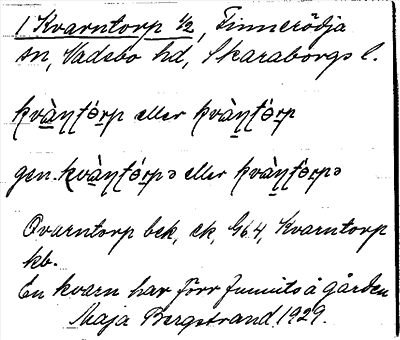 1 Kvarntorp 1/2, Finnerödja
sn, Vadsbo hd, Skaraborgs l.
kvàɳʈó̱rp eller kvàɳʈó̱rp
gen. kvàɳʈó̱rpə eller kvàɳʈó̱rpə
Qvarntorp bek, ek, G64, Kvarntorp
kb.
En kvarn har förr funnits å gården
Maja Bergstrand 1929.